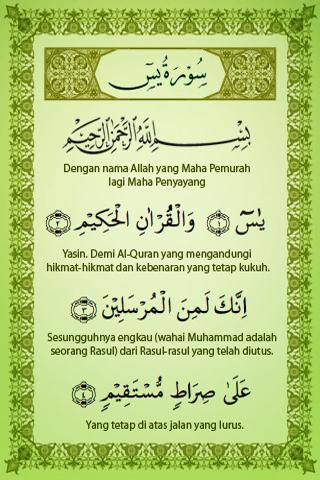 سُوْرَةُ يٰسٓ
بِسْمِ اللّٰهِ الرَّحْمٰنِ الرَّحِيْمِ
Dengan nama Allah yang Maha Pemurah
lagi Maha Penyayang
يٰسٓ ١ وَالْقُرْاٰنِ الْحَكِيْمِ ٢
Yasin. Demi Al-Quran yang mengandungi
hikmat-hikmat dan kebenaran yang tetap kukuh.
اِنَّكَ لَمِنَ الْمُرْسَلِيْنَ ٣
Sesungguhnya engkau (wahai Muhammad adalah
seorang Rasul) dari Rasul-rasul yang telah diutus.
عَلٰى صِرَاطٍ مُّسْتَقِيْمٍ ٤
Yang tetap di atas jalan yang lurus.